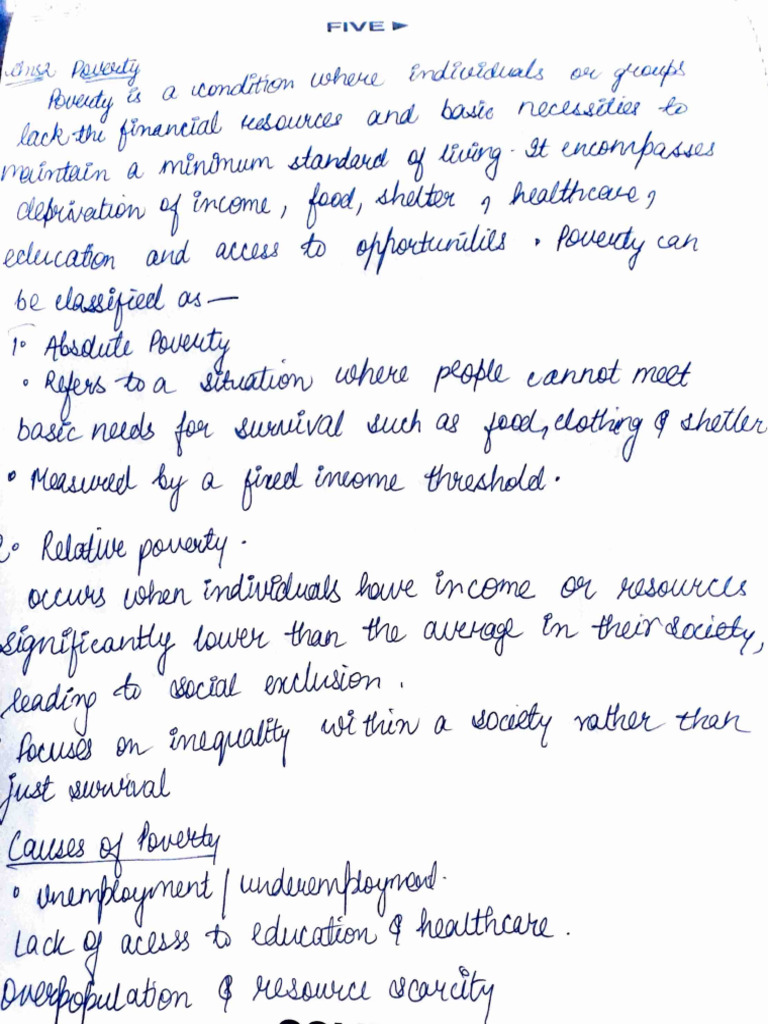 FIVE ▶
Ans2 Poverty
Poverty is a condition where individuals or groups
lack the financial resources and basic necessities to
maintain a minimum standard of living. It encompasses
deprivation of income, food, shelter, healthcare,
education and access to opportunities. Poverty can
be classified as —
1. Absolute Poverty
• Refers to a situation where people cannot meet
basic needs for survival such as food, clothing & shetler
• Measured by a fixed income threshold.
2. Relative poverty.
occurs when individuals have income or resources
significantly lower than the average in their society,
leading to social exclusion.
focuses on inequality within a society rather than
just survival
Causes of Poverty
• unemployment / underemployment.
Lack of acesss to education & healthcare.
Overpopulation & resource scarcity